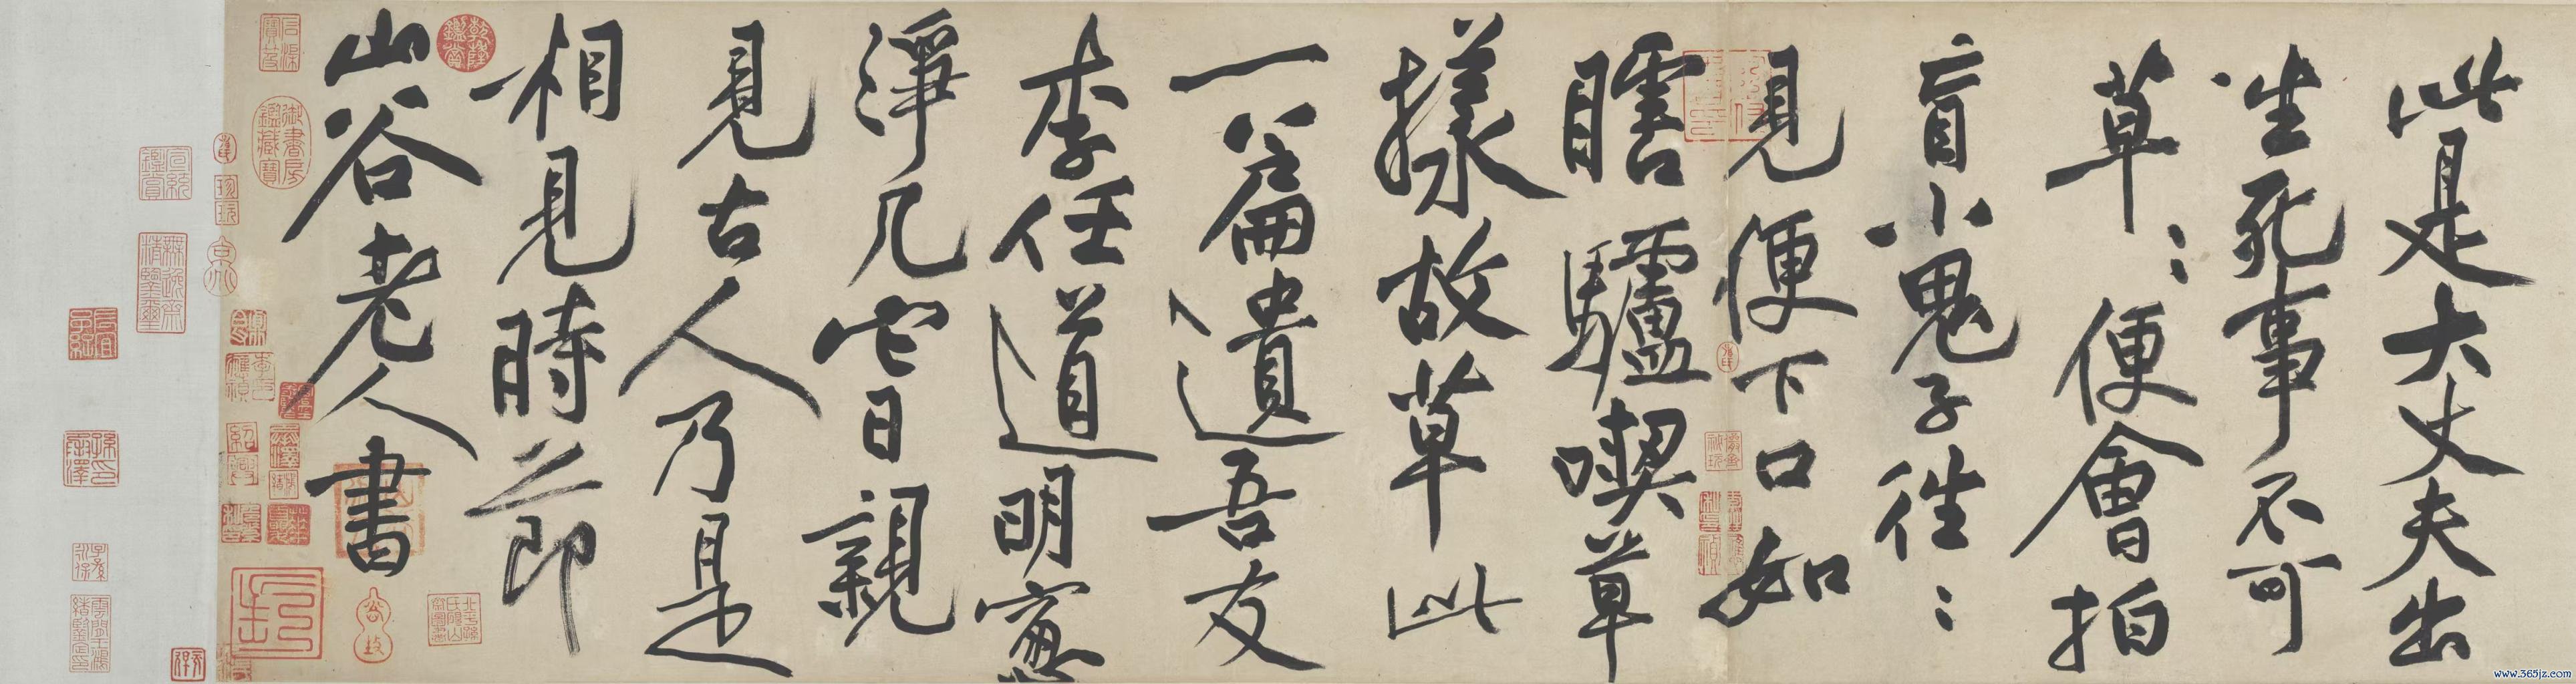 此是大丈夫出
生死事不可
草〻便會拍
盲小鬼子往〻
見便下口如
瞎驢喫草
樣故草此
一篇遺吾友
李任道明窻
淨几它日親
見古人乃是
相見時節
山谷老人書
www.365jz.com